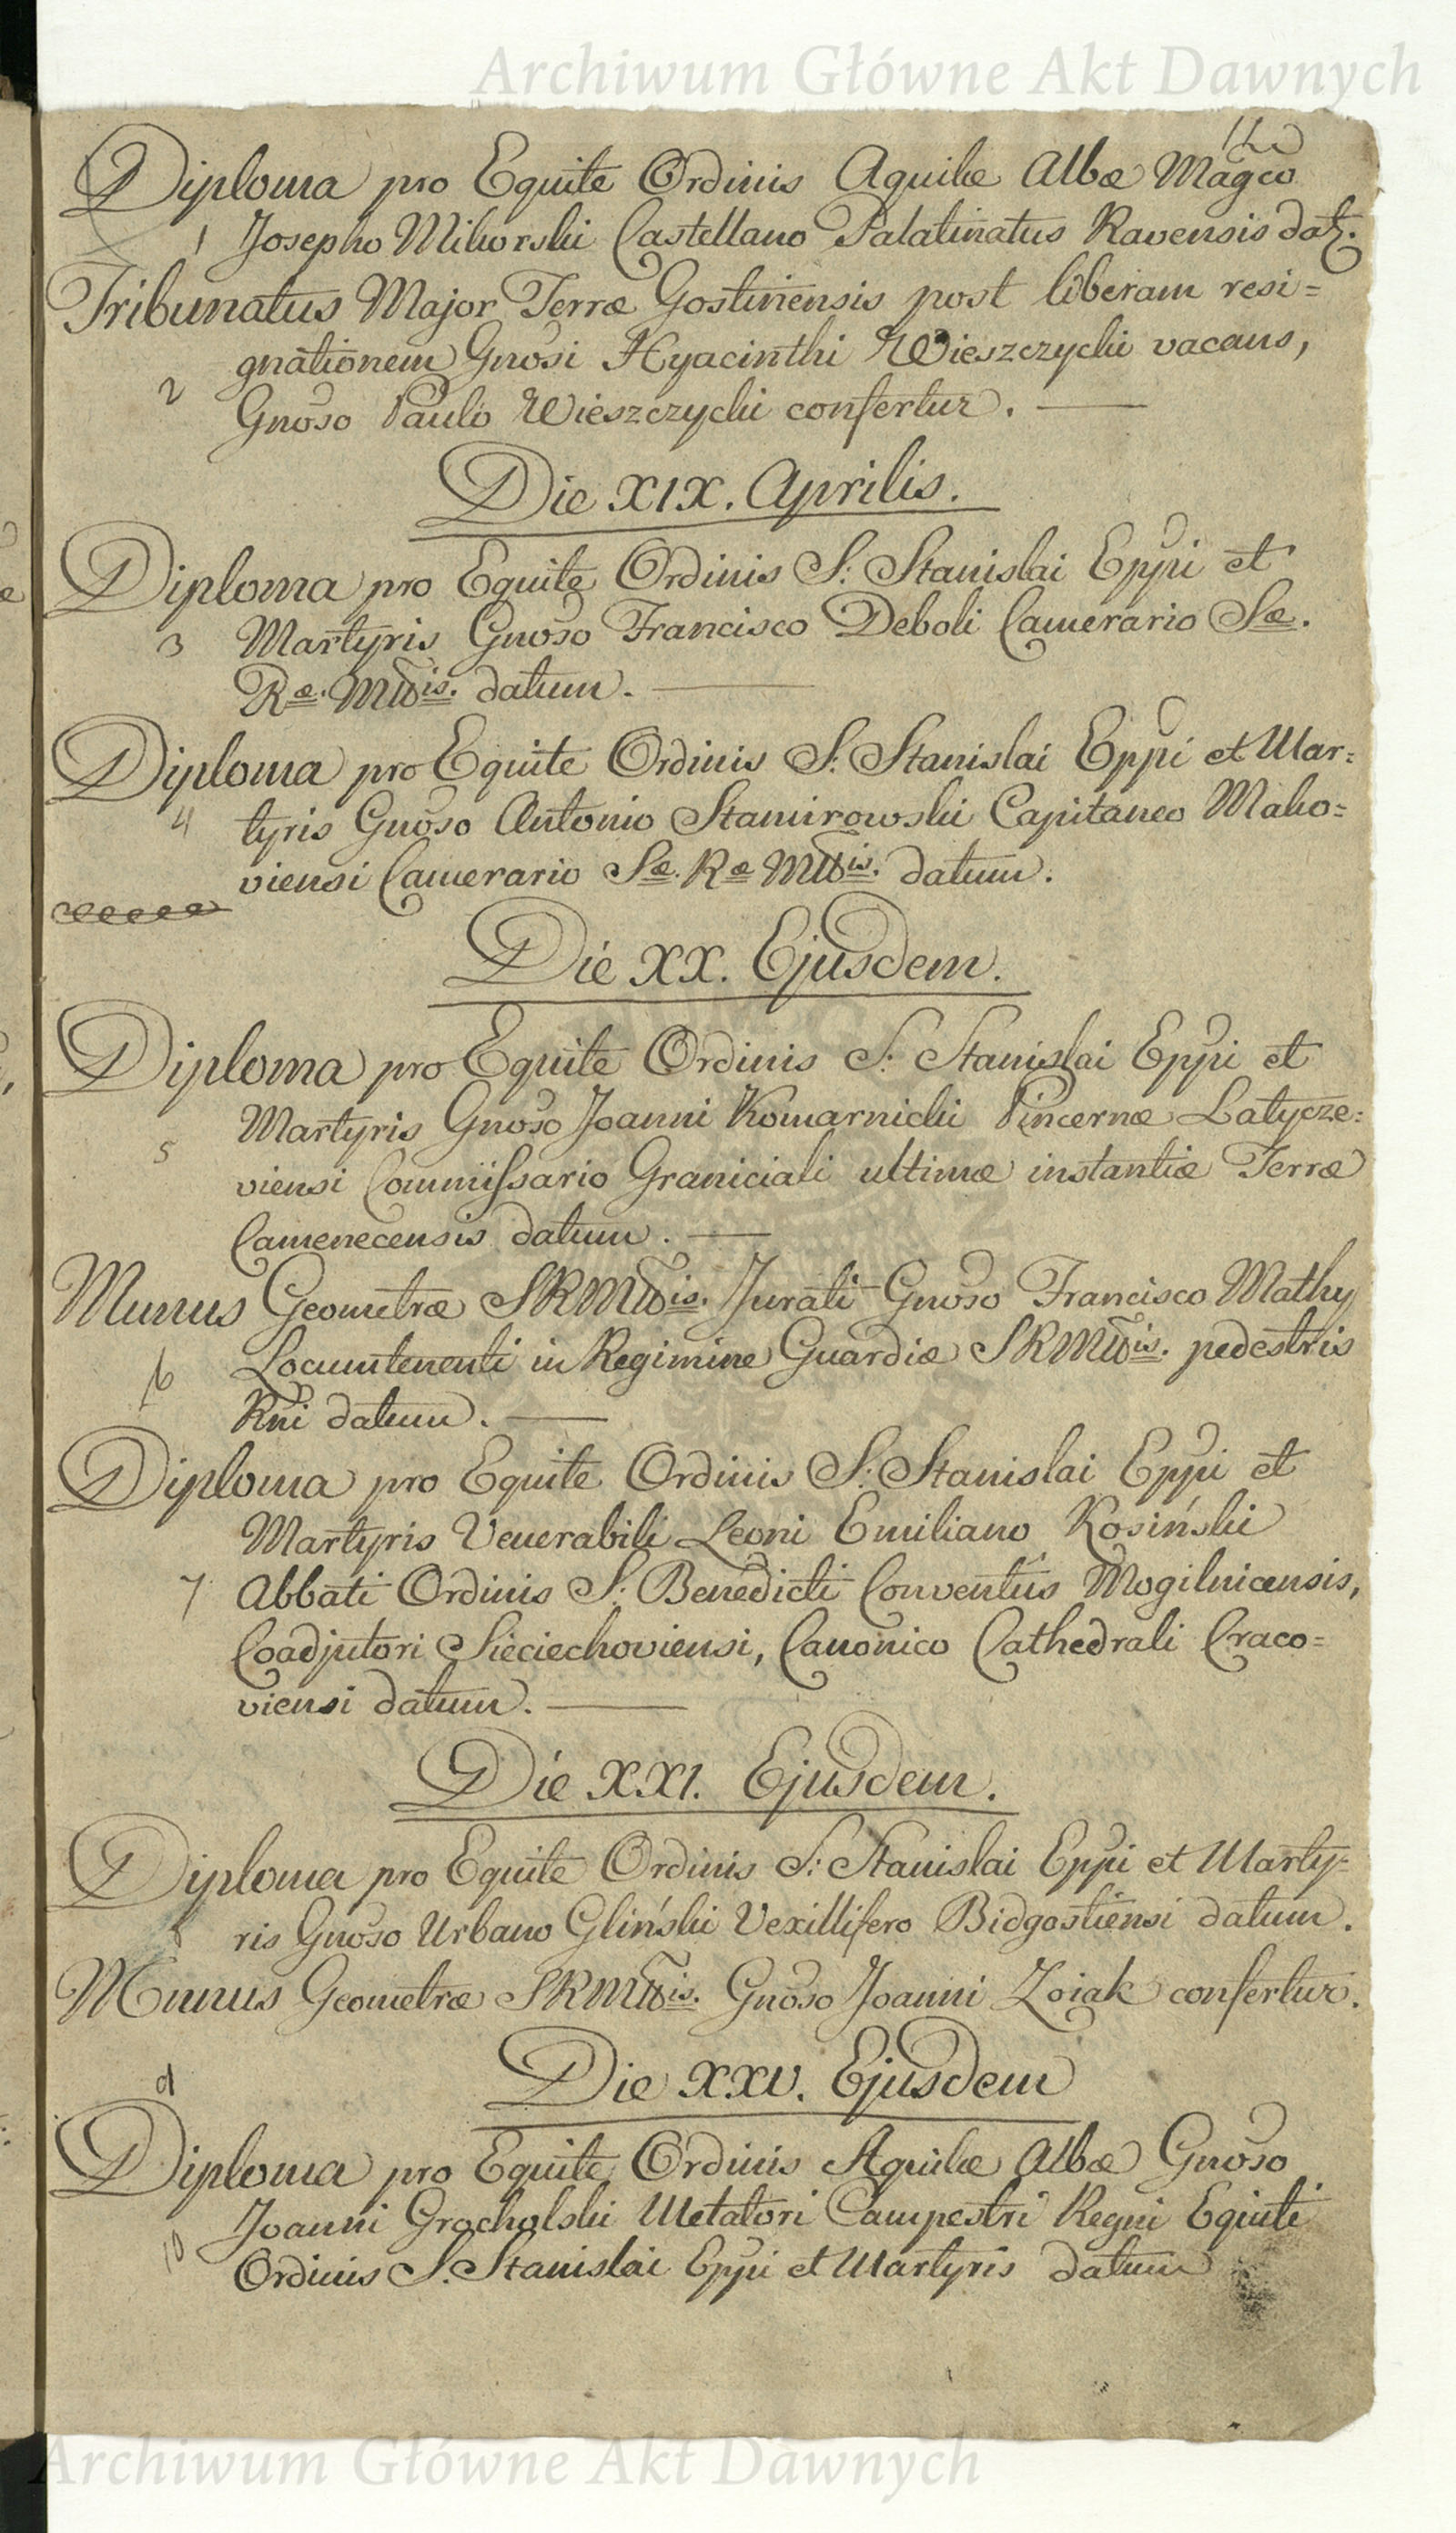 Archiwum Główne Akt Dawnych
Diploma pro Equite Ordinis Aquilæ Albæ Magco
1 Josepho Mikorski Castellano Palatinatus Ravensis dat.
Tribunatus Major Terræ Gostinensis post liberam resi=
gnationem Gnosi Hyacinthi Wieszczycki vacans,
2 Gnoso Paulo Wieszczycki confertur.
Die XIX. Aprilis.
Diploma pro Equite Ordinis S: Stanislai Eppi et
3 Martyris Gnoso Francisco Deboli Camerario Sæ.
Ræ. Mttis. datum.
Diploma pro Equite Ordinis S: Stanislai Eppi et Mar=
4 tyris Gnoso Antonio Stamirowski Capitaneo Mako=
viensi Camerario Sæ. Ræ Mttis. datum.
Die XX. Ejusdem.
Diploma pro Equite Ordinis S: Stanislai Eppi et
Martyris Gnoso Joanni Komarnicki Pincernæ Latycze=
5 viensi Commissario Graniciali ultimæ instantiæ Terræ
Camenecensis datum.
Munus Geometræ SRMttis. Jurati Gnoso Francisco Mathy
6 Locumtenenti in Regimine Guardiæ SRMttis. pedestris
Rni datum.
Diploma pro Equite Ordinis S: Stanislai Eppi et
Martyris Venerabili Leoni Emiliano Rosiński
7 Abbati Ordinis S: Benedicti Conventûs Mogilnicensis,
Coadjutori Sieciechoviensi, Canonico Cathedrali Craco=
viensi datum.
Die XXI. Ejusdem.
Diploma pro Equite Ordinis S: Stanislai Eppi et Marty=
8 ris Gnoso Urbano Gliński Vexillifero Bidgostiensi datum.
Munus Geometræ SRMttis. Gnoso Joanni Zoiak confertur.
9
Die XXV. Ejusdem
Diploma pro Equite Ordinis Aquilæ Albæ Gnoso
10 Joanni Grocholski Metatori Campestri Regni Equiti
Ordinis S. Stanislai Eppi et Martyris datum
Archiwum Główne Akt Dawnych